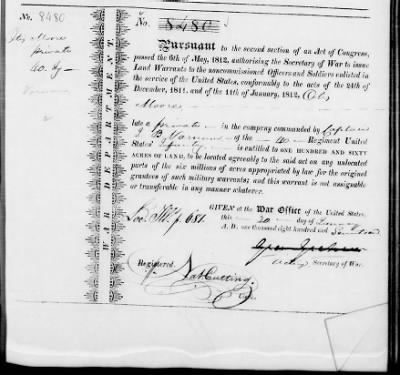 No. 8480
Moores
private
40. Reg
No. 8480
Pursuant to the second section of an Act of Congress,
passed the 6th of May, 1812, authorising the Secretary of War to issue
Land Warrants to the noncommissioned Officers and Soldiers enlisted in
the service of the United States, conformably to the acts of the 24th of
December, 1811, and of the 11th of January, 1812,
Moores
late a private in the company commanded by Captain
J B Varnum of the 40 Regiment United
States Infantry is entitled to ONE HUNDRED AND SIXTY
ACRES OF LAND, to be located agreeably to the said act on any unlocated
parts of the six millions of acres appropriated by law for the original
grantees of such military warrants; and this warrant is not assignable
or transferable in any manner whatever.
GIVEN at the War Office of the United States,
this 20 day of
A. D. one thousand eight hundred and
Secretary of War.
Registered.
Nat Cutting
Clerk.
WAR DEPARTMENT.